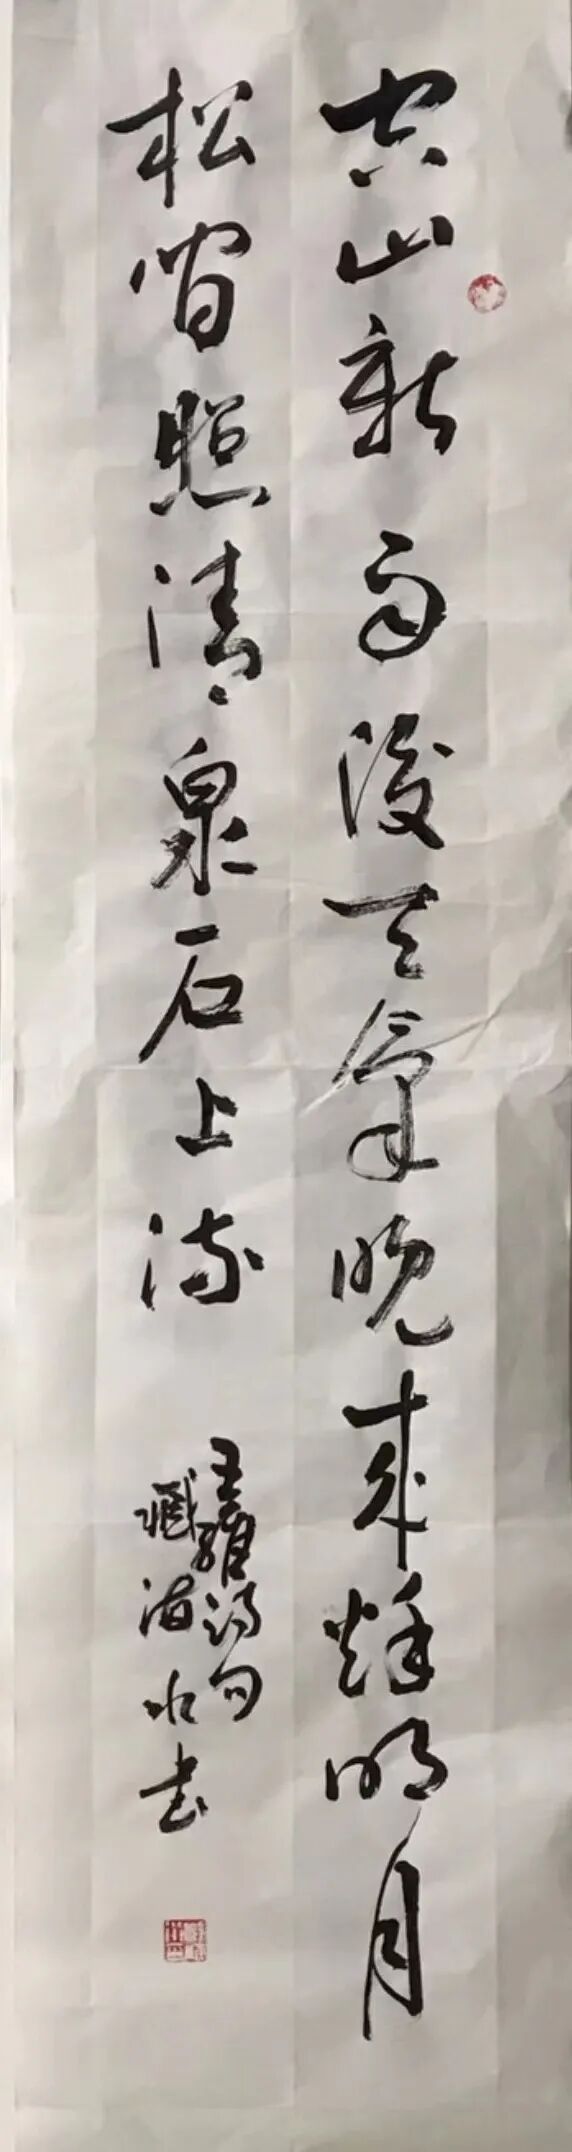 空山新雨後天氣晚来秋明月
松间照清泉石上流
王維诗句
臧海水书